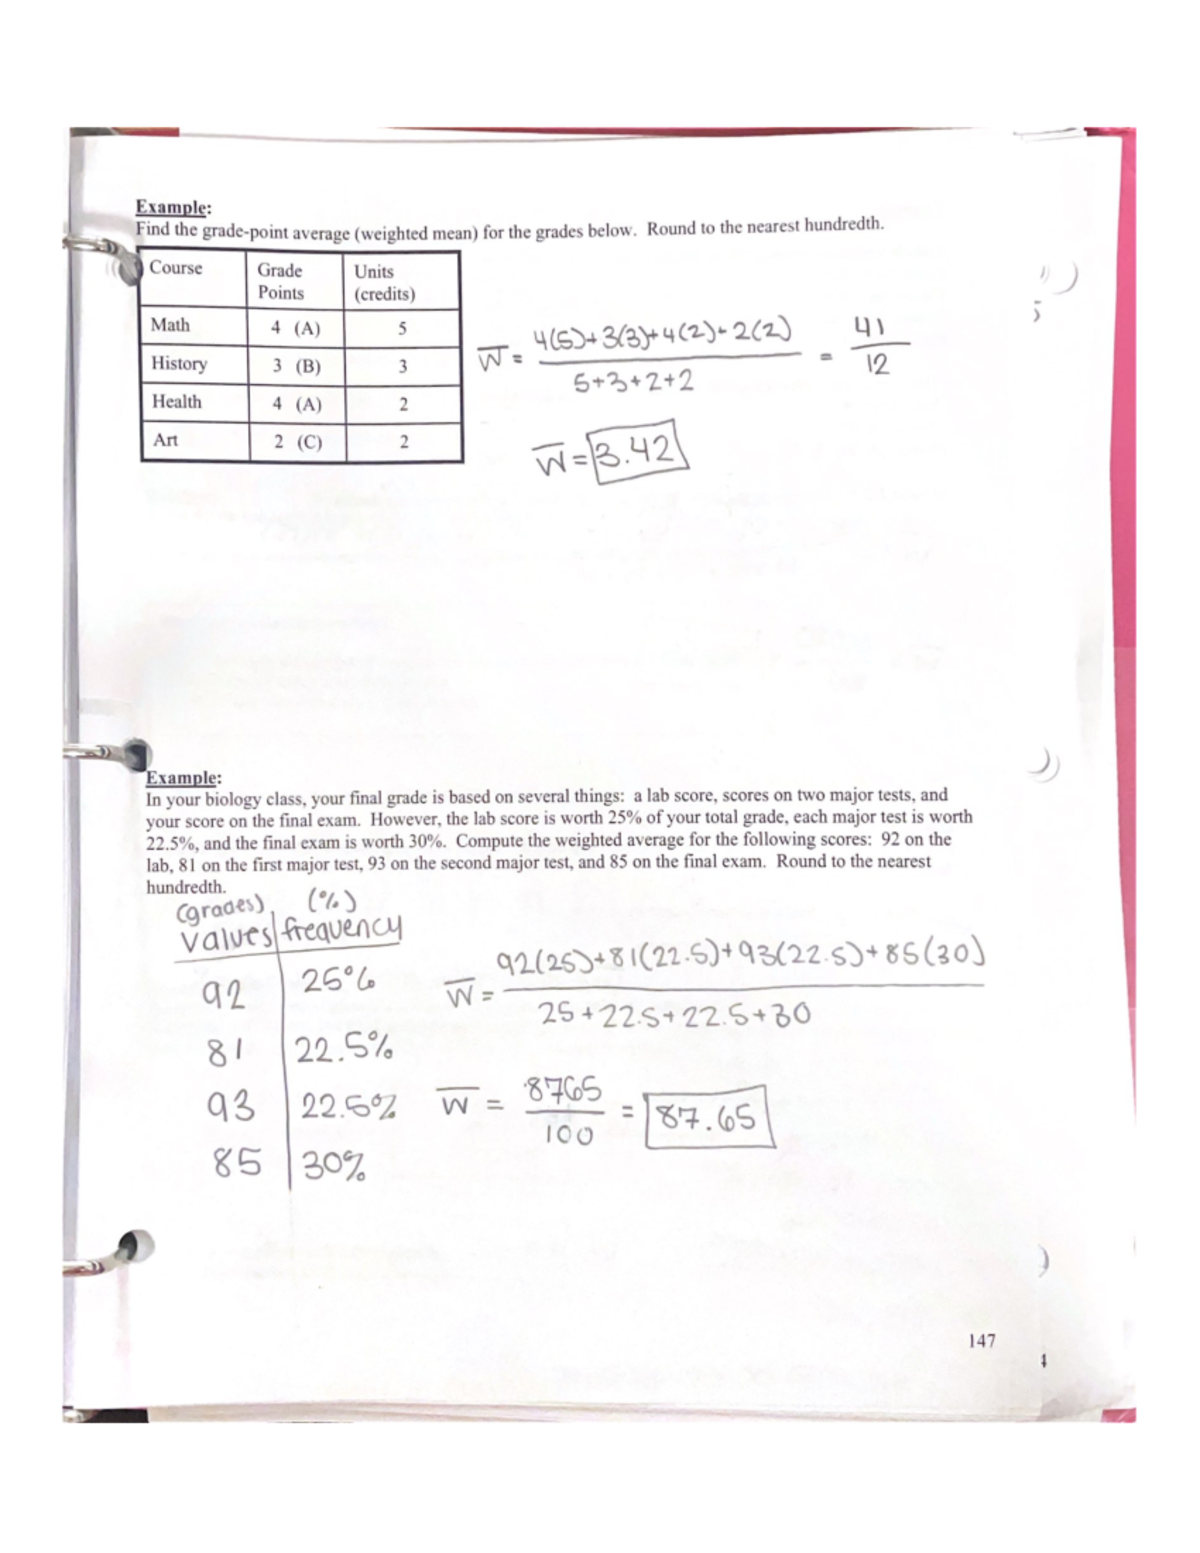 Example:
Find the grade-point average (weighted mean) for the grades below. Round to the nearest hundredth.
Course Grade Points Units (credits)
Math 4 (A) 5
History 3 (B) 3
Health 4 (A) 2
Art 2 (C) 2
W̅ = 4(5)+3(3)+4(2)+2(2) / 5+3+2+2 = 41/12
W̅ = 3.42
Example:
In your biology class, your final grade is based on several things: a lab score, scores on two major tests, and
your score on the final exam. However, the lab score is worth 25% of your total grade, each major test is worth
22.5%, and the final exam is worth 30%. Compute the weighted average for the following scores: 92 on the
lab, 81 on the first major test, 93 on the second major test, and 85 on the final exam. Round to the nearest
hundredth.
(grades) (%)
values frequency
92 25%
81 22.5%
93 22.5%
85 30%
W̅ = 92(25)+81(22.5)+93(22.5)+85(30) / 25+22.5+22.5+30
W̅ = 8765/100 = 87.65
147